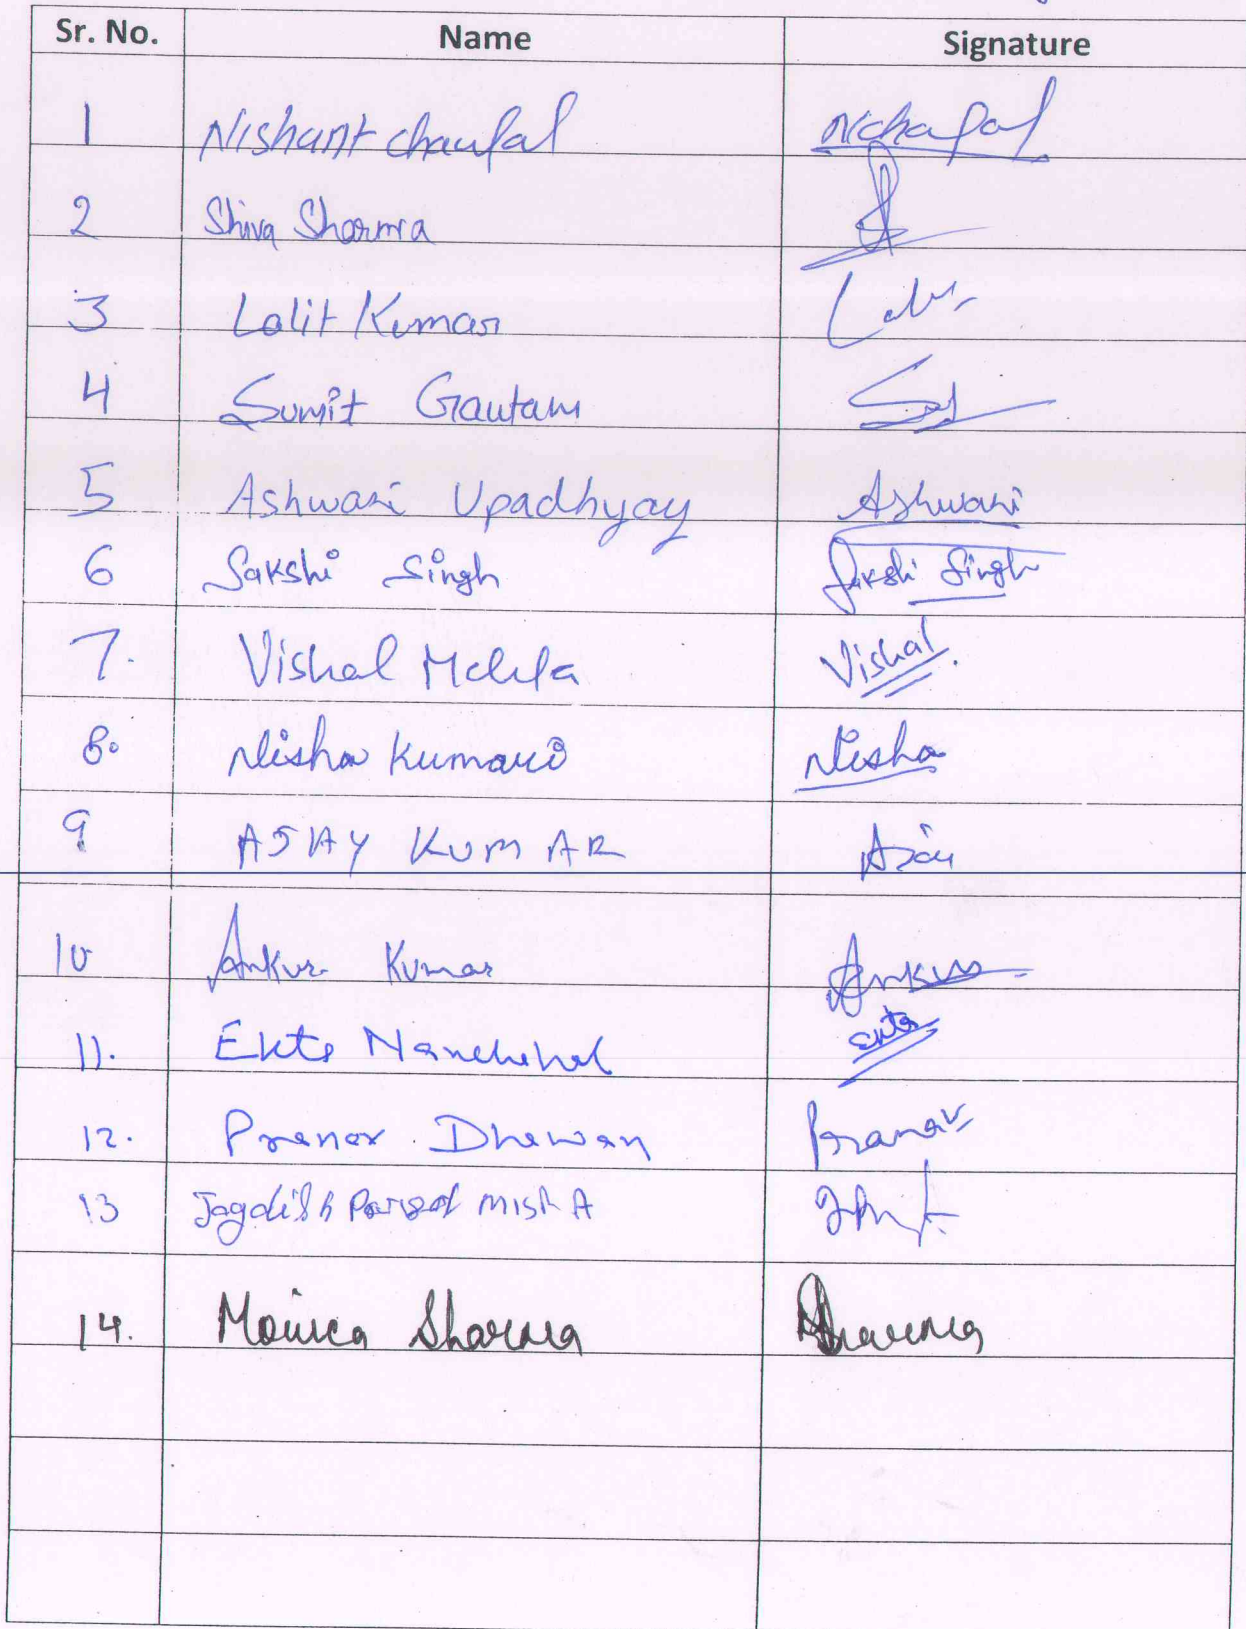 Sr. No. Name Signature
1 Nishant chaufal
2 Shiva Sharma
3 Lalit Kumar
4 Sumit Gautam
5 Ashwani Upadhyay Ashwani
6 Sakshi Singh Sakshi Singh
7. Vishal Mehta Vishal
8. Nisha Kumari Nisha
9 AJAY KUMAR
10 Ankur Kumar Ankur
11. Ekta Ekta
12. Pranav Dhawan Pranav
13 Jagdish Parsad MISRA
14. Monica Sharma Sharma